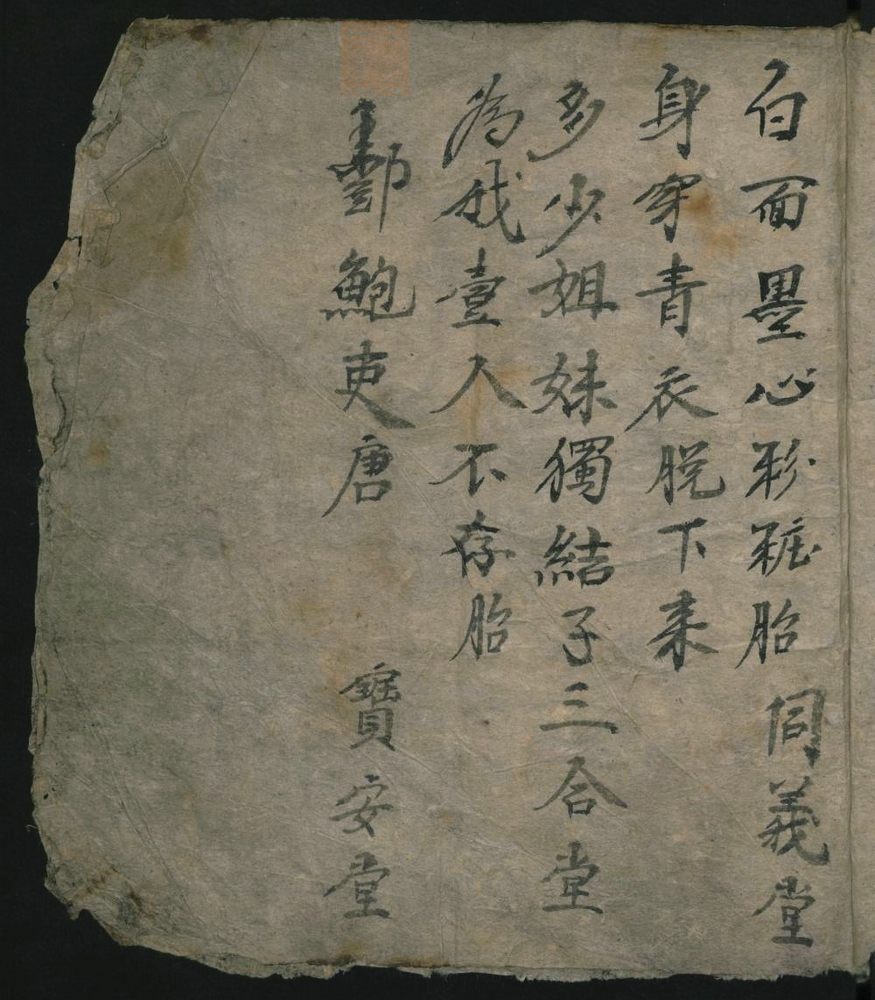 白面墨心彩粧胎 同義堂
身穿青衣脱下来
多少姐妹獨結子 三合堂
為我壹人不存胎
鄷鮑吏唐 寶安堂